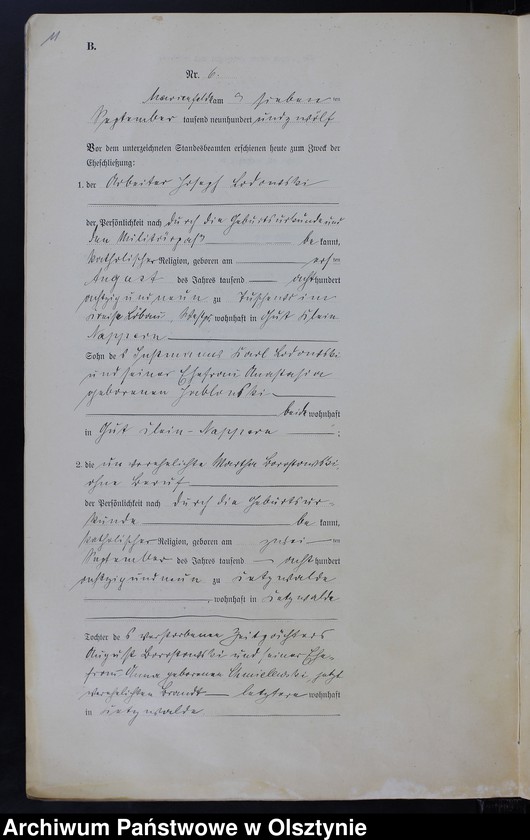 11
B.
Nr. 6.
Marienfelde am sieben ten
September tausend neunhundert und zwölf
Vor dem unterzeichneten Standesbeamten erschienen heute zum Zweck der
Eheschließung:
1. der Arbeiter Joseph
der Persönlichkeit nach durch die Geburtsurkunde und
den Militärpaß be kannt,
katholischer Religion, geboren am ersten
August des Jahres tausend acht hundert
achtzig und neun zu
Kreise Löbau Westpr wohnhaft in Gut Klein
Nappern
Sohn des Instmanns Karl
und seiner Ehefrau Anastasia
geborenen Jablonski
beide wohnhaft
in Gut Klein-Nappern ;
2. die unverehelichte Martha
ohne Beruf
der Persönlichkeit nach durch die Geburtsur-
kunde be kannt,
katholischer Religion, geboren am zwei ten
September des Jahres tausend acht hundert
achtzig und neun zu
, wohnhaft in
Tochter des verstorbenen Zeitpächters
August und seiner Ehe-
frau Anna geborenen jetzt
verehelichten Brandt letztere wohnhaft
in
Archiwum Państwowe w Olsztynie